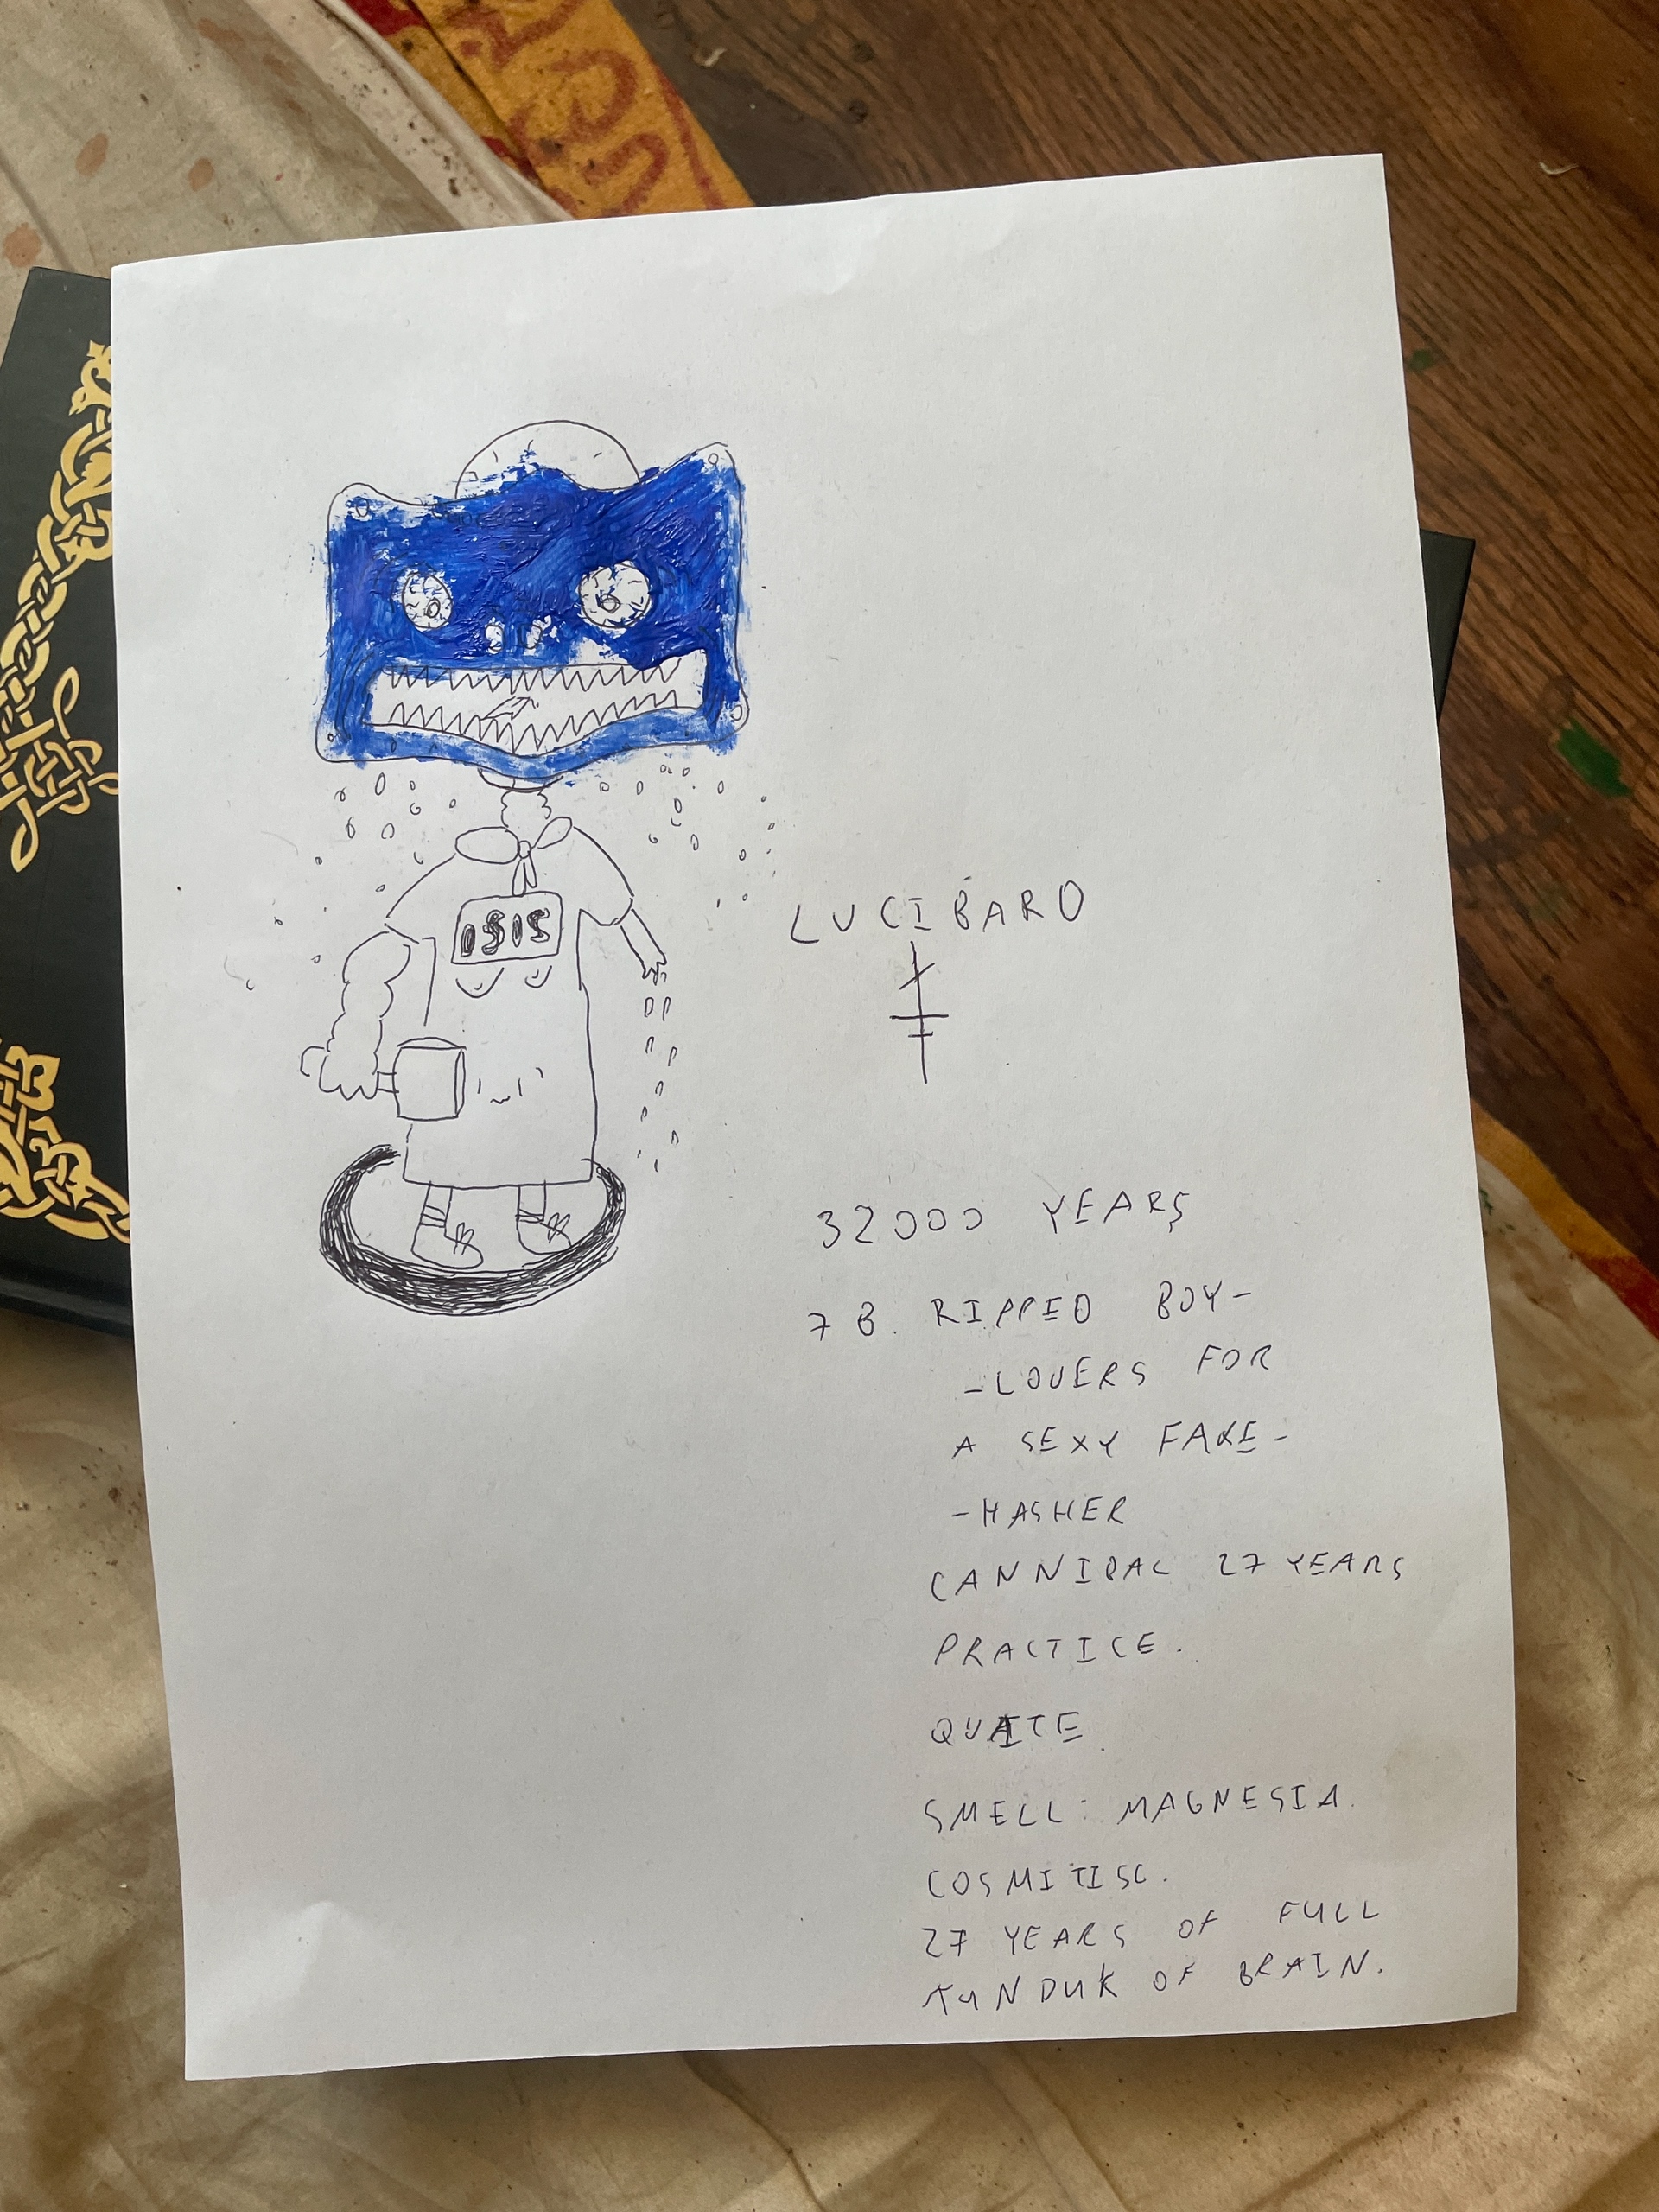 ISIS
LUCIBARO
32000 YEARS
7 B. RIPPED BOY-
-LOVERS FOR
A SEXY FAKE-
-MASHER
CANNIBAL 27 YEARS
PRACTICE.
QUAITE
SMELL: MAGNESIA.
COSMITISC.
27 YEARS OF FULL
OF BRAIN.